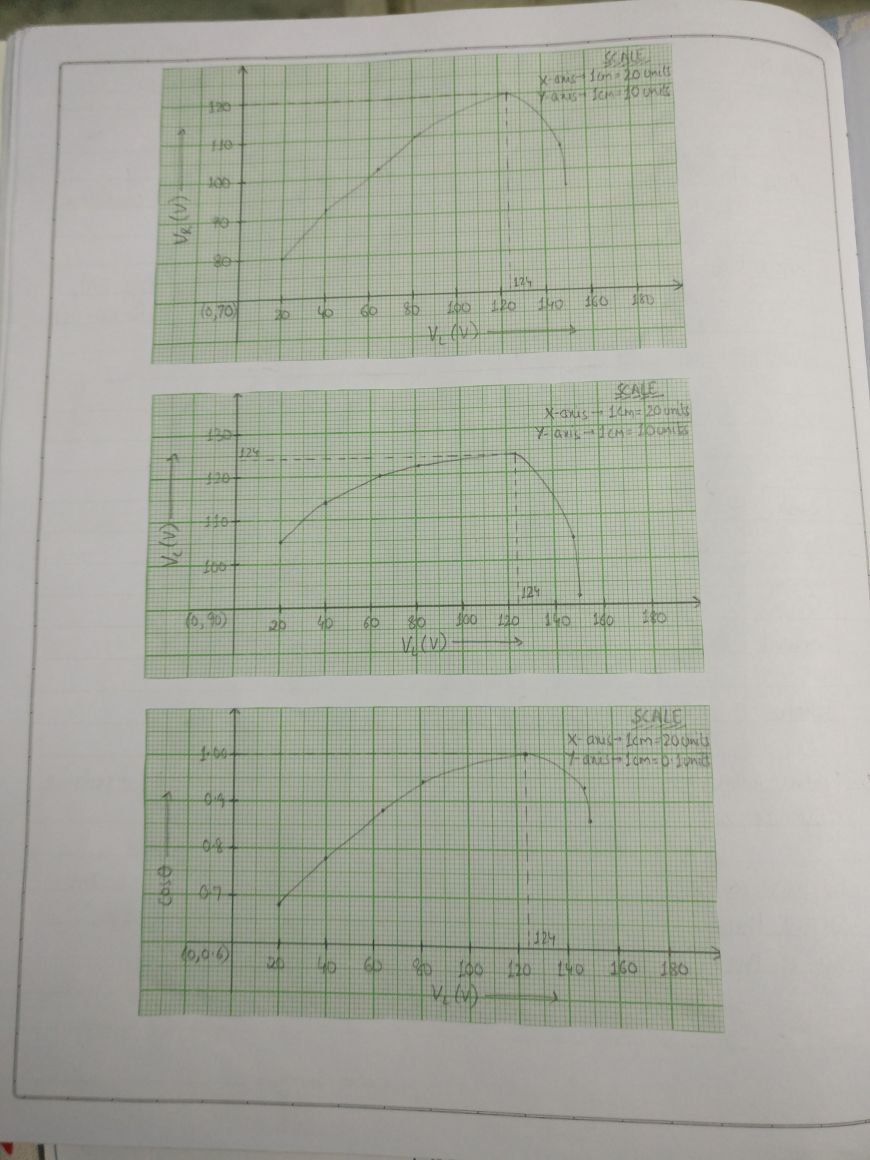 SCALE
X-axis → 1cm = 20 units
Y-axis → 1cm = 10 units
120
110
100
90
80
V_R (V)
124
(0,70) 20 40 60 80 100 120 140 160 180
V_L (V)
SCALE
X-axis → 1cm = 20 units
Y-axis → 1cm = 10 units
130
124
120
110
100
V_C (V)
124
(0,90) 20 40 60 80 100 120 140 160 180
V_L (V)
SCALE
X-axis → 1cm = 20 units
Y-axis → 1cm = 0.1 units
1.00
0.9
0.8
0.7
cosθ
124
(0,0.6) 20 40 60 80 100 120 140 160 180
V_L (V)